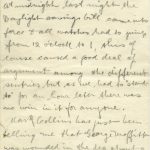 At midnight last night the
Daylight savings bill came into
force & all watches had to
from 12 o'clock to 1, this of
course caused a good deal of
argument among the different
sentries, but as we had to stand
to for an hour later there was
no win in it for anyone.
Collins has just been
telling me that George Griffith
was wounded in the leg